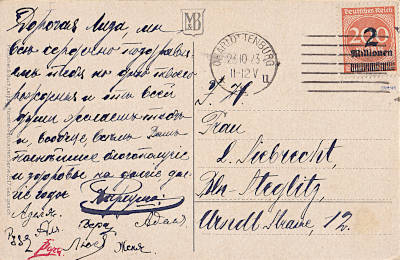 Дорогая Лида, мы
все сердечно поздравля
ем тебя ко дню твоего
рождения и от всей
души желаем тебе
и, вообще, всем Вам
наилучшие благополучие
и здоровье на долгие дол
гие годы
Адель.
Аля.
Вера
Адам.
Люся
Женя.
MB
CHARLOTTENBURG
23.10.23
11-12 V
Deutsches Reich
200
2
Millionen
P. H.
Frau
L. Siebrecht,
Bln-Steglitz,
Arndt Strasse, 12.